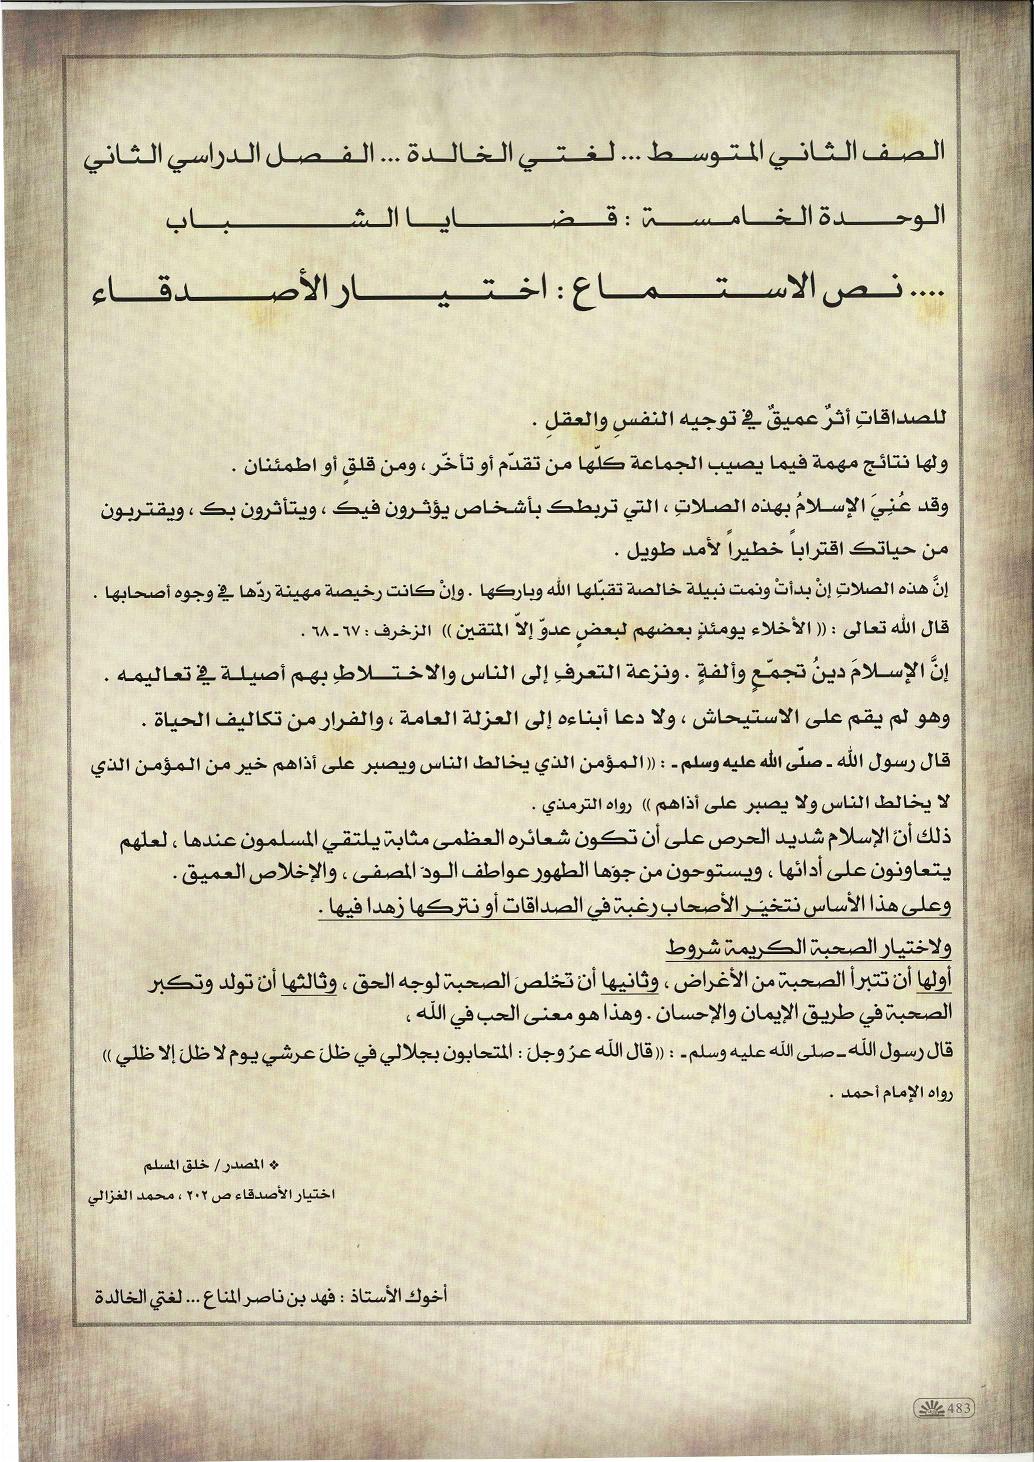 الصف الثاني المتوسط ... لغتي الخالدة ... الفصل الدراسي الثاني
الوحدة الخامسة : قضايا الشباب
.... نص الاستماع : اختيار الأصدقاء
للصداقاتِ أثرٌ عميقٌ في توجيه النفسِ والعقلِ .
ولها نتائج مهمة فيما يصيب الجماعة كلّها من تقدّم أو تأخّر ، ومن قلقٍ أو اطمئنان .
وقد عُنِيَ الإسلامُ بهذه الصلاتِ ، التي تربطك بأشخاص يؤثرون فيك ، ويتأثرون بك ، ويقتربون
من حياتك اقتراباً خطيراً لأمد طويل .
إنَّ هذه الصلاتِ إنْ بدأتْ ونمت نبيلة خالصة تقبّلها الله وباركها . وإنْ كانت رخيصة مهينة ردّها في وجوه أصحابها .
قال الله تعالى : (( الأخلاء يومئذٍ بعضهم لبعضٍ عدوّ إلاّ المتقين )) الزخرف : ٦٧ ـ ٦٨ .
إنَّ الإسلامَ دينُ تجمّعٍ وألفةٍ . ونزعة التعرفِ إلى الناس والاختلاطِ بهم أصيلة في تعاليمه .
وهو لم يقم على الاستيحاش ، ولا دعا أبناءه إلى العزلة العامة ، والفرار من تكاليف الحياة .
قال رسول الله ـ صلّى الله عليه وسلم ـ : (( المؤمن الذي يخالط الناس ويصبر على أذاهم خير من المؤمن الذي
لا يخالط الناس ولا يصبر على أذاهم )) رواه الترمذي .
ذلك أنّ الإسلام شديد الحرص على أن تكون شعائره العظمى مثابة يلتقي المسلمون عندها ، لعلّهم
يتعاونون على أدائها ، ويستوحون من جوّها الطهور عواطف الودّ المصفى ، والإخلاص العميق .
وعلى هذا الأساس نتخيّر الأصحاب رغبة في الصداقات أو نتركها زهدا فيها .
ولاختيار الصحبة الكريمة شروط
أولها أنْ تتبرأ الصحبة من الأغراض ، وثانيها أنْ تخلصَ الصحبة لوجه الحق ، وثالثها أنْ تولد وتكبر
الصحبة في طريق الإيمان والإحسان . وهذا هو معنى الحب في الله ،
قال رسول الله ـ صلى الله عليه وسلم ـ : (( قال الله عزّ وجلّ : المتحابون بجلالي في ظلّ عرشي يوم لا ظلّ إلا ظلّي ))
رواه الإمام أحمد .
❖ المصدر / خلق المسلم
اختيار الأصدقاء ص ٢٠٢ ، محمد الغزالي
أخوك الأستاذ : فهد بن ناصر المناع ... لغتي الخالدة
483